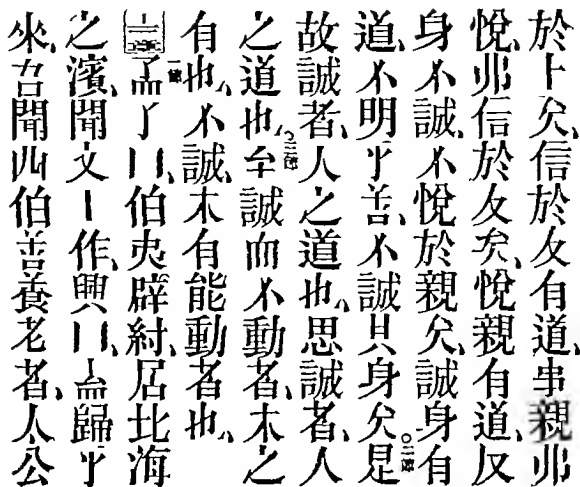 於上矣、信於友有道、事親弗
悅、弗信於友矣、悅親有道、反
身不誠、不悅於親矣、誠身有
道、不明乎善、不誠其身矣、○二節是
故誠者、天之道也、思誠者、人
之道也、○三節至誠而不動者、未之
有也、不誠、未有能動者也、
一節孟子曰、伯夷辟紂、居北海
之濱、聞文王作、興曰、盍歸乎
來、吾聞西伯善養老者、太公